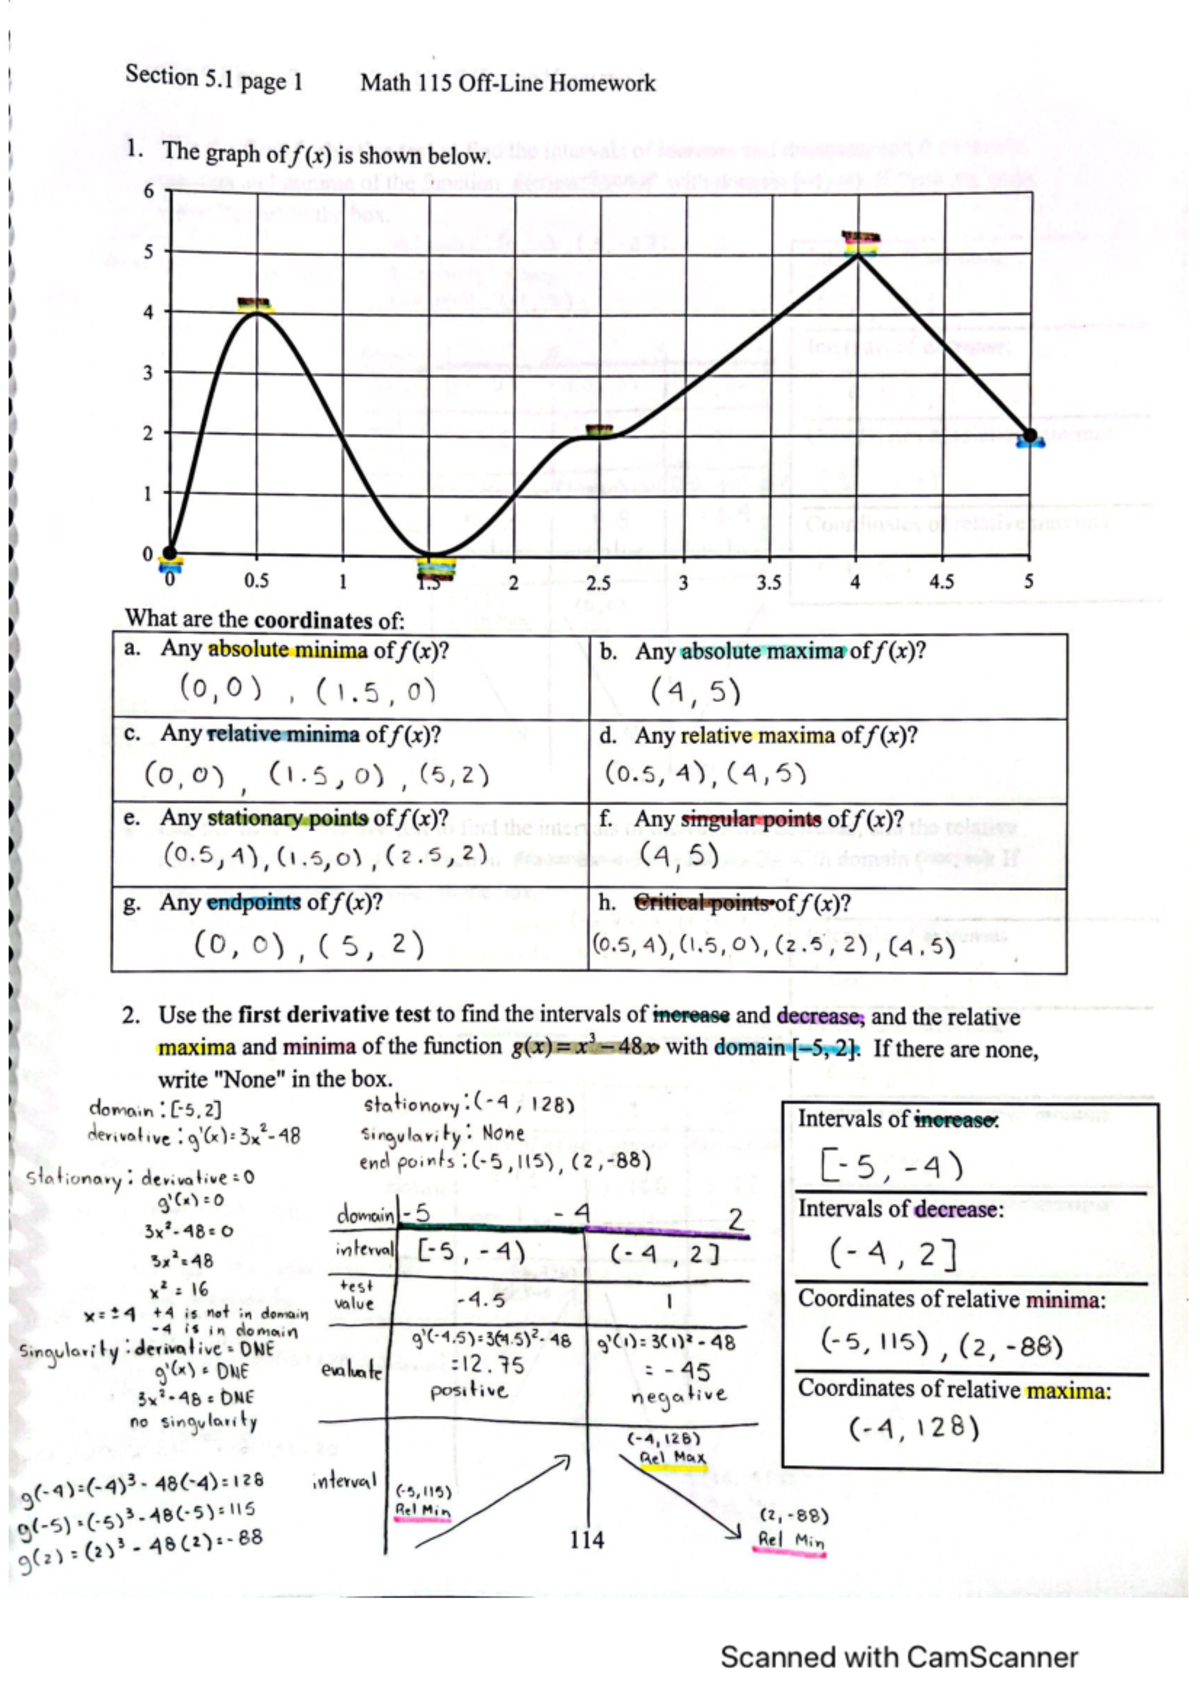 Section 5.1 page 1 Math 115 Off-Line Homework
1. The graph of f(x) is shown below.
6
5
4
3
2
1
0
0 0.5 1 1.5 2 2.5 3 3.5 4 4.5 5
What are the coordinates of:
a. Any absolute minima of f(x)?
(0,0) , (1.5, 0)
b. Any absolute maxima of f(x)?
(4,5)
c. Any relative minima of f(x)?
(0,0) , (1.5, 0) , (5,2)
d. Any relative maxima of f(x)?
(0.5, 4), (4,5)
e. Any stationary points of f(x)?
(0.5, 4), (1.5,0) , (2.5, 2)
f. Any singular points of f(x)?
(4,5)
g. Any endpoints of f(x)?
(0, 0) , (5, 2)
h. Critical points of f(x)?
(0.5, 4), (1.5, 0), (2.5, 2), (4.5)
2. Use the first derivative test to find the intervals of increase and decrease, and the relative
maxima and minima of the function g(x) = x³ – 48x with domain [–5, 2]. If there are none,
write "None" in the box.
domain: [-5, 2]
derivative: g'(x) = 3x²-48
stationary: derivative = 0
g'(x) = 0
3x²-48 = 0
3x² = 48
x² = 16
x = ±4 +4 is not in domain
-4 is in domain
Singularity: derivative = DNE
g'(x) = DNE
3x²-48 = DNE
no singularity
g(-4)=(-4)³- 48(-4)=128
g(-5)=(-5)³-48(-5)=115
g(2)=(2)³ - 48(2)=-88
stationary: (-4, 128)
singularity: None
end points: (-5,115), (2,-88)
domain -5 -4 2
interval [-5, -4) (-4, 2]
test value -4.5 1
evaluate g'(-4.5)=3(4.5)²-48 g'(1)=3(1)²-48
=12.75 = -45
positive negative
interval
(-5,115)
Rel Min
(-4,128)
Rel Max
(2,-88)
Rel Min
Intervals of increase:
[-5, -4)
Intervals of decrease:
(-4, 2]
Coordinates of relative minima:
(-5, 115) , (2, -88)
Coordinates of relative maxima:
(-4, 128)
114
Scanned with CamScanner